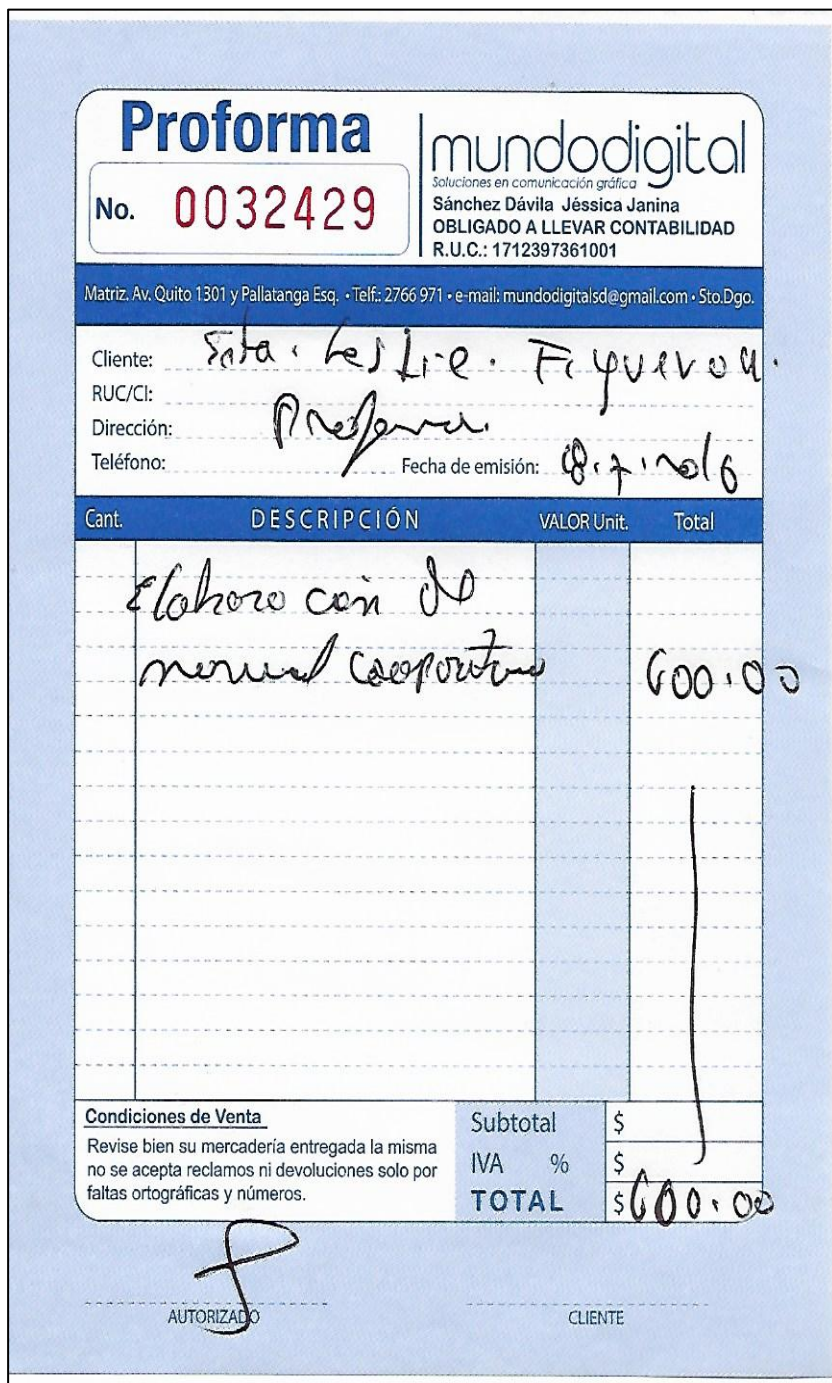 Proforma
No. 0032429
mundodigital
Soluciones en comunicación gráfica
Sánchez Dávila Jéssica Janina
OBLIGADO A LLEVAR CONTABILIDAD
R.U.C.: 1712397361001
Matriz. Av. Quito 1301 y Pallatanga Esq. • Telf.: 2766 971 • e-mail: mundodigitalsd@gmail.com • Sto.Dgo.
Cliente: Srta. Leslie. Figueroa.
RUC/CI:
Dirección: Proforma
Teléfono: Fecha de emisión:
Cant. DESCRIPCIÓN VALOR Unit. Total
Elaboración de
600.00
Condiciones de Venta
Revise bien su mercadería entregada la misma
no se acepta reclamos ni devoluciones solo por
faltas ortográficas y números.
Subtotal $
IVA % $
TOTAL $ 600.00
AUTORIZADO
CLIENTE